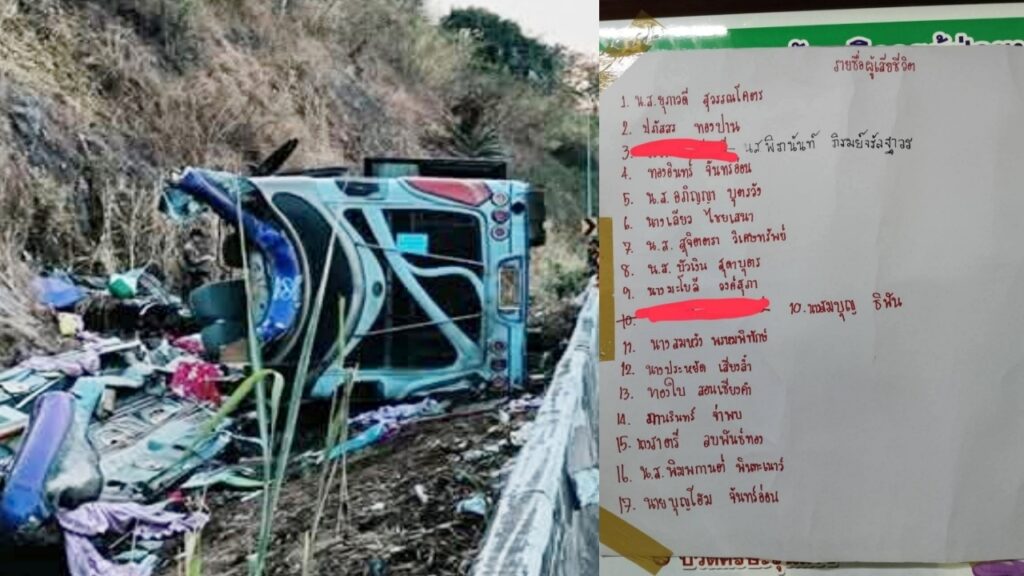 รายชื่อผู้เสียชีวิต
1. น.ส.ยุภาวดี สุวรรณโคตร
2. ปภัสสร ทองปาน
3. น.ส.พิธานันท์ ภิรมย์จรัสฐาวร
4. ทองอินทร์ จันทร์อ่อน
5. น.ส.อภิญญา บุตรวัง
6. นางเลียว ไชยเสนา
7. น.ส. สุจิตตรา วิเศษทรัพย์
8. น.ส. บัวเงิน สุดาบุตร
9. นางมะโยลี วงค์สุภา
10. 10. บุญ ธิพัน
11. นางสมหวัง พรหมพิทักษ์
12. นางประหยัด เสียงล้ำ
13. ทองใบ สอนเชียงคำ
14. จำพบ
15. อบพันธ์ทอง
16. น.ส.พิมพกานต์
17. นายบุญโฮม จันทร์อ่อน